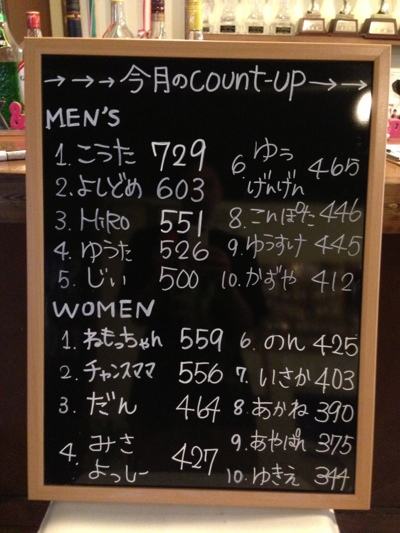 →→→今月のcount-up→→
MEN'S
1. こうた 729
2. よしどめ 603
3. HiRO 551
4. ゆうた 526
5. じぃ 500
6. ゆう
げんげん 465
8. こんぽた 446
9. ゆうすけ 445
10. かずや 412
WOMEN
1. ねもっちゃん 559
2. チャンスママ 556
3. だん 464
4. みさ
よっしー 427
6. のん 425
7. いさか 403
8. あかね 390
9. あやぱん 375
10. ゆきえ 344